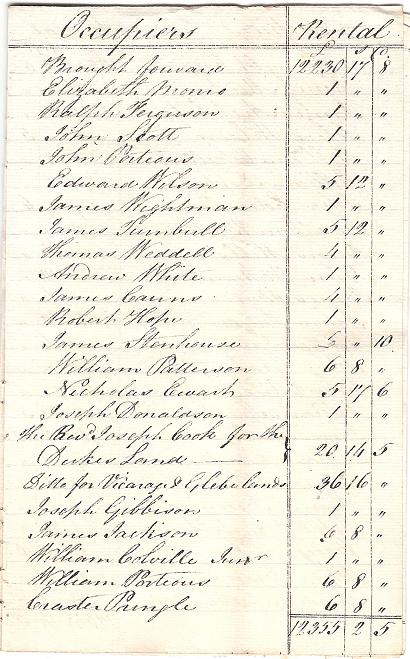 Occupiers Rental
£ s d
Brought forward 12230 17 8
Elizabeth Monro 1 " "
Ralph Ferguson 1 " "
John Scott 1 " "
John Porteous 1 " "
Edward Wilson 5 12 "
James Wightman 1 " "
James Turnbull 5 12 "
Thomas Weddell 4 " "
Andrew White 1 " "
James Cairns 4 " "
Robert Hope 1 " "
James Stenhouse " 10
William Patterson 6 8 "
Nicholas Ewart 5 17 6
Joseph Donaldson 1 " "
The Revd Joseph Cook for the
Dukes Land — 20 14 5
Ditto for Vicarage & Glebe lands 36 16 "
Joseph Gibbison 1 " "
James Jackson 6 8 "
William Colville Junr 1 " "
William Porteous 6 8 "
Craster Pringle 6 8 "
12355 2 5